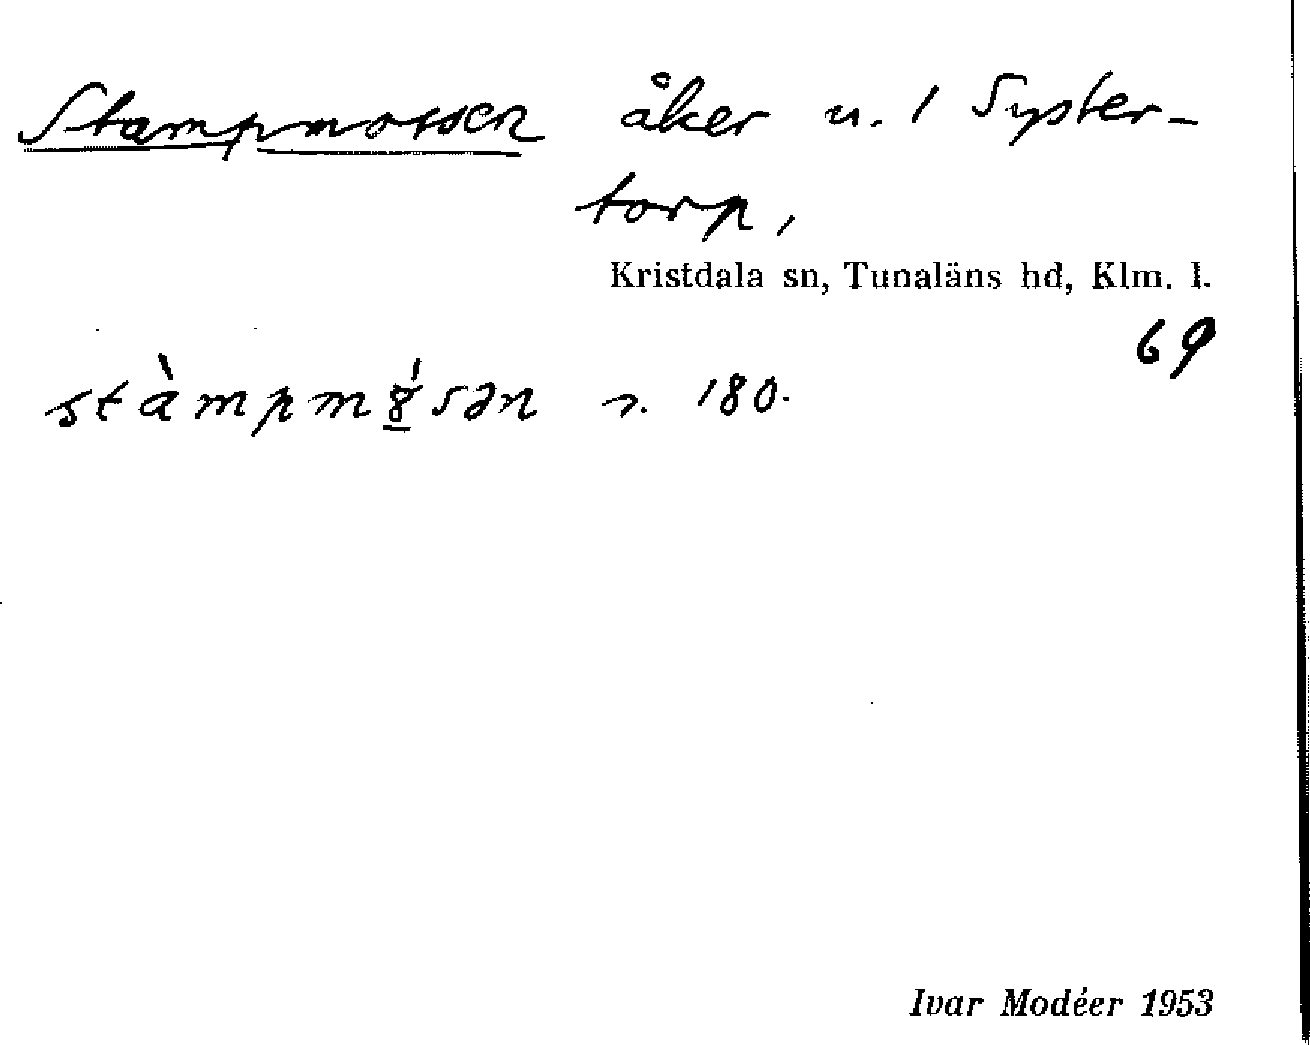 Stampmossen åker u. 1 Syster-
torp,
Kristdala sn, Tunaläns hd, Klm. l.
69
stàmpm8̲́sən s. 180.
Ivar Modéer 1953